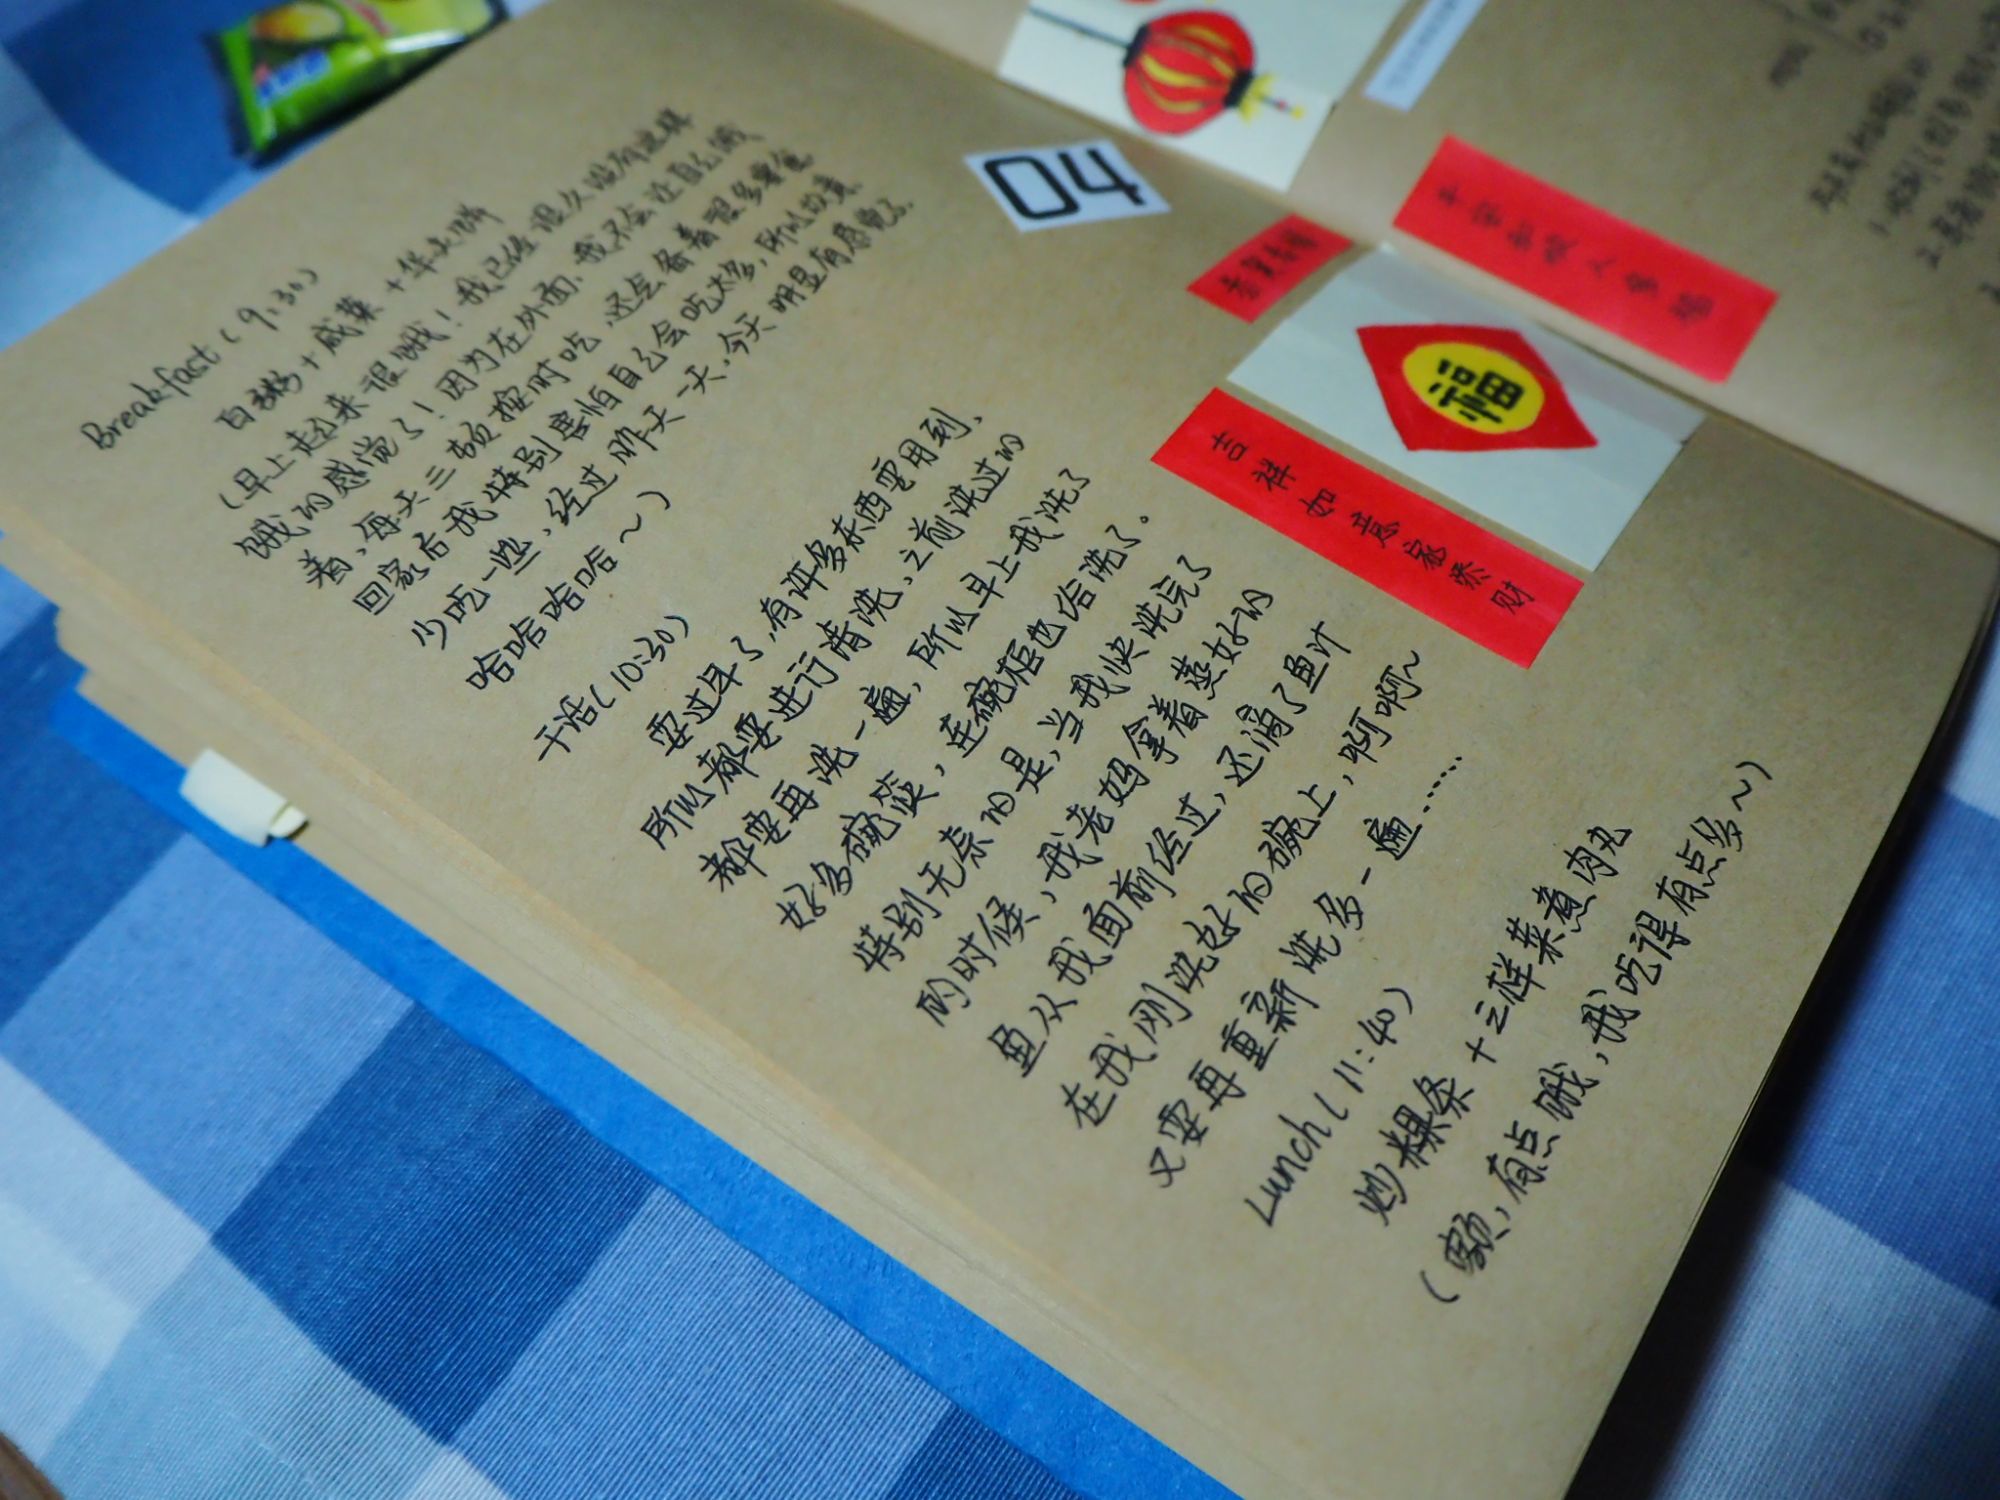 Breakfast (9:30)
白粥+咸菜+
(早上起来很饿！我已经很久没有这样
饿的感觉了！因为在外面，我不会让自己饿
着，每天三顿按时吃，还会备着很多零食
回家后我特别害怕自己会吃太多，所以
少吃一些，经过昨天一天，今天明显有感觉了，
哈哈哈哈哈～)
干活(10:30)
要过年了，有许多东西要用到，
所以都要进行清洗，之前洗过的
都要再洗一遍，所以早上我洗了
好多碗筷，连碗柜也给洗了。
特别无奈的是，当我快洗完了
的时候，我老妈拿着蒸好的
鱼从我面前经过，还滴了鱼汁
在我刚洗好的碗上，啊啊～
又要再重新洗多一遍……
Lunch(11:40)
炒粿条+三样菜煮肉丸
(额，有点饿，我吃得有点多～)
04
恭贺新禧
平安和顺人多福
福
吉祥如意家添财